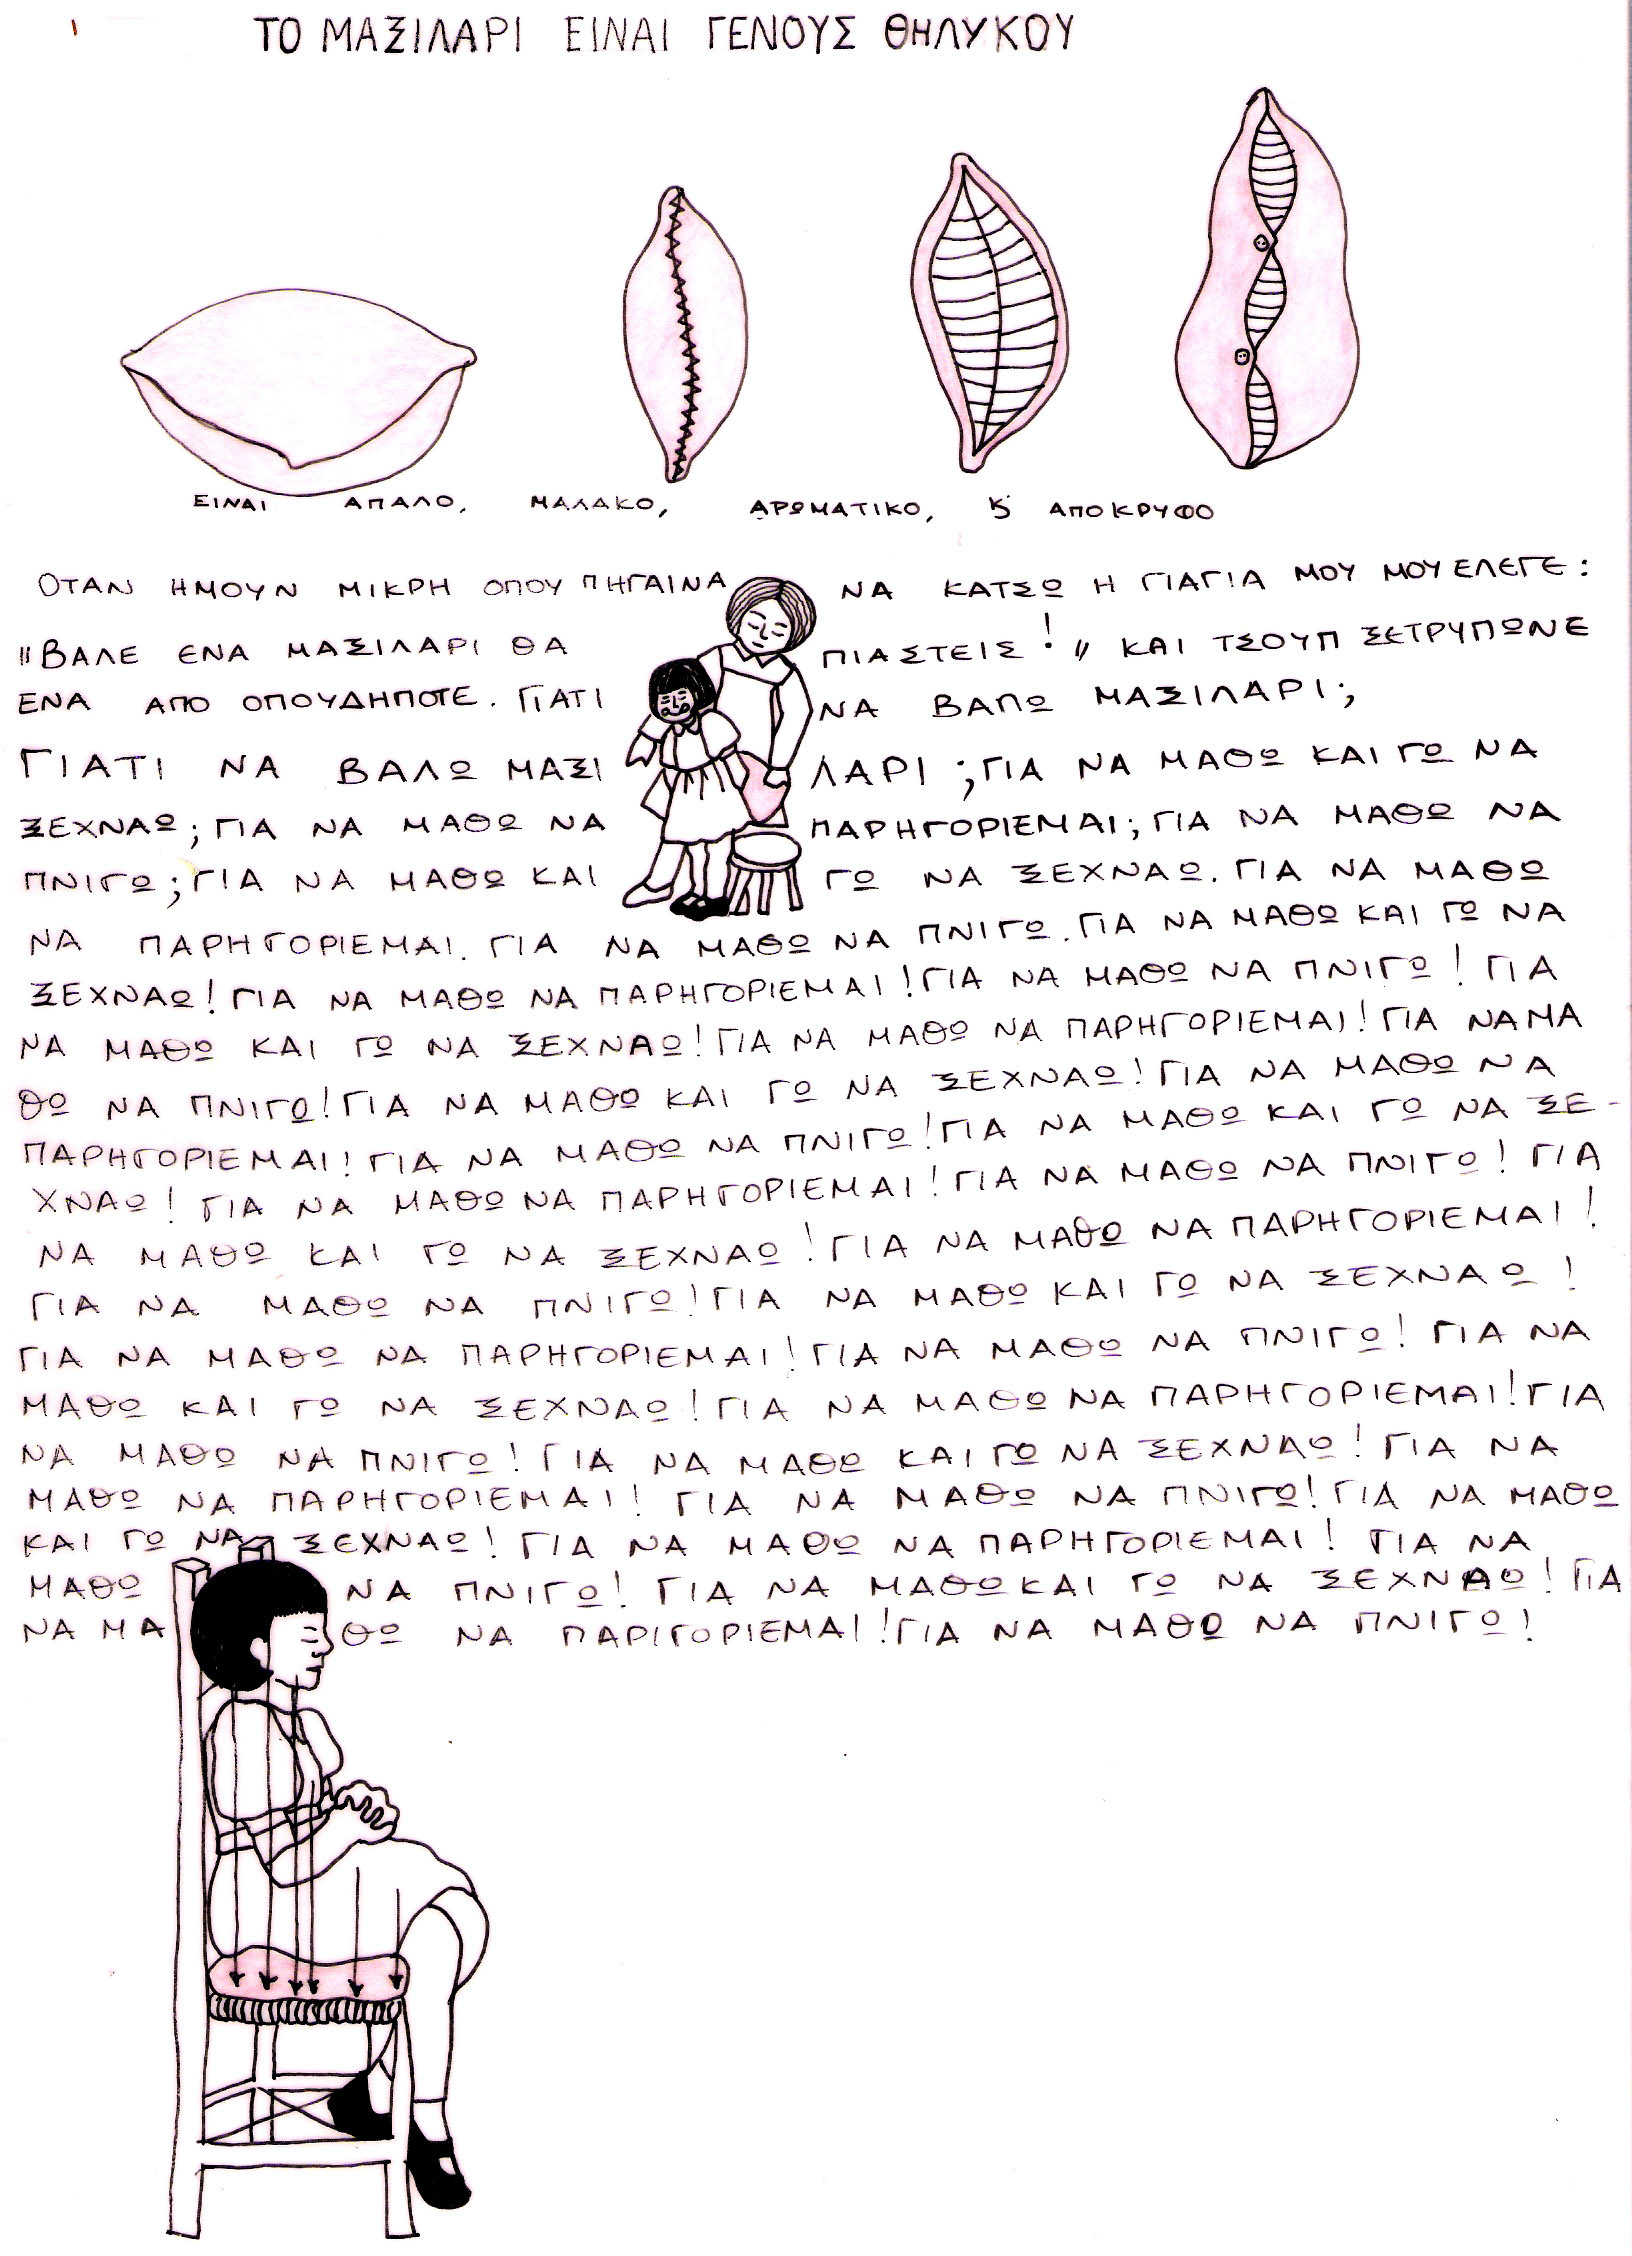 ΤΟ ΜΑΞΙΛΑΡΙ ΕΙΝΑΙ ΓΕΝΟΥΣ ΘΗΛΥΚΟΥ
ΕΙΝΑΙ ΑΠΑΛΟ, ΜΑΛΑΚΟ, ΑΡΩΜΑΤΙΚΟ, ϗ ΑΠΟΚΡΥΦΟ
ΟΤΑΝ ΗΜΟΥΝ ΜΙΚΡΗ ΟΠΟΥ ΠΗΓΑΙΝΑ ΝΑ ΚΑΤΣΩ Η ΓΙΑΓΙΑ ΜΟΥ ΜΟΥ ΕΛΕΓΕ:
"ΒΑΛΕ ΕΝΑ ΜΑΞΙΛΑΡΙ ΘΑ ΠΙΑΣΤΕΙΣ!" ΚΑΙ ΤΣΟΥΠ ΞΕΤΡΥΠΩΝΕ
ΕΝΑ ΑΠΟ ΟΠΟΥΔΗΠΟΤΕ. ΓΙΑΤΙ ΝΑ ΒΑΛΩ ΜΑΞΙΛΑΡΙ;
ΓΙΑΤΙ ΝΑ ΒΑΛΩ ΜΑΞΙΛΑΡΙ; ΓΙΑ ΝΑ ΜΑΘΩ ΚΑΙ ΓΩ ΝΑ
ΞΕΧΝΑΩ; ΓΙΑ ΝΑ ΜΑΘΩ ΝΑ ΠΑΡΗΓΟΡΙΕΜΑΙ; ΓΙΑ ΝΑ ΜΑΘΩ ΝΑ
ΠΝΙΓΩ; ΓΙΑ ΝΑ ΜΑΘΩ ΚΑΙ ΓΩ ΝΑ ΞΕΧΝΑΩ. ΓΙΑ ΝΑ ΜΑΘΩ
ΝΑ ΠΑΡΗΓΟΡΙΕΜΑΙ. ΓΙΑ ΝΑ ΜΑΘΩ ΝΑ ΠΝΙΓΩ. ΓΙΑ ΝΑ ΜΑΘΩ ΚΑΙ ΓΩ ΝΑ
ΞΕΧΝΑΩ! ΓΙΑ ΝΑ ΜΑΘΩ ΝΑ ΠΑΡΗΓΟΡΙΕΜΑΙ! ΓΙΑ ΝΑ ΜΑΘΩ ΝΑ ΠΝΙΓΩ! ΓΙΑ
ΝΑ ΜΑΘΩ ΚΑΙ ΓΩ ΝΑ ΞΕΧΝΑΩ! ΓΙΑ ΝΑ ΜΑΘΩ ΝΑ ΠΑΡΗΓΟΡΙΕΜΑΙ! ΓΙΑ ΝΑ ΜΑ
ΘΩ ΝΑ ΠΝΙΓΩ! ΓΙΑ ΝΑ ΜΑΘΩ ΚΑΙ ΓΩ ΝΑ ΞΕΧΝΑΩ! ΓΙΑ ΝΑ ΜΑΘΩ ΝΑ
ΠΑΡΗΓΟΡΙΕΜΑΙ! ΓΙΑ ΝΑ ΜΑΘΩ ΝΑ ΠΝΙΓΩ! ΓΙΑ ΝΑ ΜΑΘΩ ΚΑΙ ΓΩ ΝΑ ΞΕ-
ΧΝΑΩ! ΓΙΑ ΝΑ ΜΑΘΩ ΝΑ ΠΑΡΗΓΟΡΙΕΜΑΙ! ΓΙΑ ΝΑ ΜΑΘΩ ΝΑ ΠΝΙΓΩ! ΓΙΑ
ΝΑ ΜΑΘΩ ΚΑΙ ΓΩ ΝΑ ΞΕΧΝΑΩ! ΓΙΑ ΝΑ ΜΑΘΩ ΝΑ ΠΑΡΗΓΟΡΙΕΜΑΙ!
ΓΙΑ ΝΑ ΜΑΘΩ ΝΑ ΠΝΙΓΩ! ΓΙΑ ΝΑ ΜΑΘΩ ΚΑΙ ΓΩ ΝΑ ΞΕΧΝΑΩ!
ΓΙΑ ΝΑ ΜΑΘΩ ΝΑ ΠΑΡΗΓΟΡΙΕΜΑΙ! ΓΙΑ ΝΑ ΜΑΘΩ ΝΑ ΠΝΙΓΩ! ΓΙΑ ΝΑ
ΜΑΘΩ ΚΑΙ ΓΩ ΝΑ ΞΕΧΝΑΩ! ΓΙΑ ΝΑ ΜΑΘΩ ΝΑ ΠΑΡΗΓΟΡΙΕΜΑΙ! ΓΙΑ
ΝΑ ΜΑΘΩ ΝΑ ΠΝΙΓΩ! ΓΙΑ ΝΑ ΜΑΘΩ ΚΑΙ ΓΩ ΝΑ ΞΕΧΝΑΩ! ΓΙΑ ΝΑ
ΜΑΘΩ ΝΑ ΠΑΡΗΓΟΡΙΕΜΑΙ! ΓΙΑ ΝΑ ΜΑΘΩ ΝΑ ΠΝΙΓΩ! ΓΙΑ ΝΑ ΜΑΘΩ
ΚΑΙ ΓΩ ΝΑ ΞΕΧΝΑΩ! ΓΙΑ ΝΑ ΜΑΘΩ ΝΑ ΠΑΡΗΓΟΡΙΕΜΑΙ! ΓΙΑ ΝΑ
ΜΑΘΩ ΝΑ ΠΝΙΓΩ! ΓΙΑ ΝΑ ΜΑΘΩ ΚΑΙ ΓΩ ΝΑ ΞΕΧΝΑΩ! ΓΙΑ
ΝΑ ΜΑΘΩ ΝΑ ΠΑΡΙΓΟΡΙΕΜΑΙ! ΓΙΑ ΝΑ ΜΑΘΩ ΝΑ ΠΝΙΓΩ!